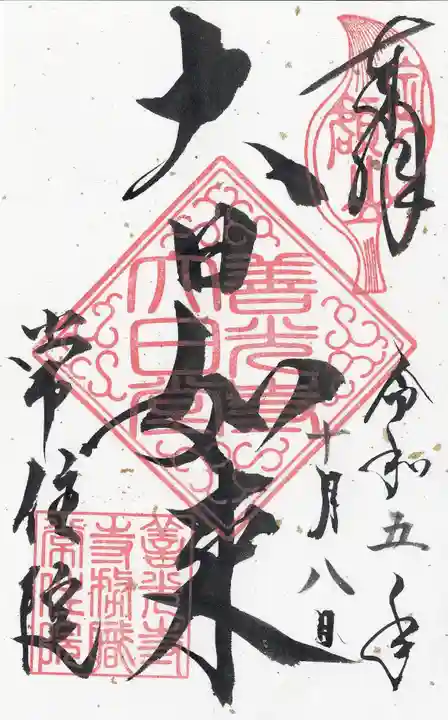 奉拝
令和五年
十月八日
大日如来
善光寺
大日堂
常住院
善光寺
寺務職
常住院